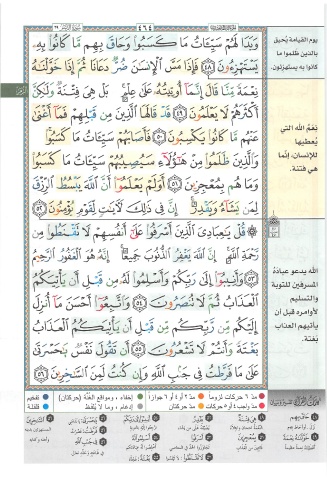 ٤٦٤
وَبَدَا لَهُمْ سَيِّئَاتُ مَا كَسَبُوا۟ وَحَاقَ بِهِم مَّا كَانُوا۟ بِهِۦ
يَسْتَهْزِءُونَ ٤٨ فَإِذَا مَسَّ ٱلْإِنسَٰنَ ضُرٌّ دَعَانَا ثُمَّ إِذَا خَوَّلْنَٰهُ
نِعْمَةً مِّنَّا قَالَ إِنَّمَآ أُوتِيتُهُۥ عَلَىٰ عِلْمٍۭ بَلْ هِىَ فِتْنَةٌ وَلَٰكِنَّ
أَكْثَرَهُمْ لَا يَعْلَمُونَ ٤٩ قَدْ قَالَهَا ٱلَّذِينَ مِن قَبْلِهِمْ فَمَآ أَغْنَىٰ
عَنْهُم مَّا كَانُوا۟ يَكْسِبُونَ ٥٠ فَأَصَابَهُمْ سَيِّئَاتُ مَا كَسَبُوا۟
وَٱلَّذِينَ ظَلَمُوا۟ مِنْ هَٰٓؤُلَآءِ سَيُصِيبُهُمْ سَيِّئَاتُ مَا كَسَبُوا۟
وَمَا هُم بِمُعْجِزِينَ ٥١ أَوَلَمْ يَعْلَمُوٓا۟ أَنَّ ٱللَّهَ يَبْسُطُ ٱلرِّزْقَ
لِمَن يَشَآءُ وَيَقْدِرُ إِنَّ فِى ذَٰلِكَ لَءَايَٰتٍ لِّقَوْمٍ يُؤْمِنُونَ ٥٢
قُلْ يَٰعِبَادِىَ ٱلَّذِينَ أَسْرَفُوا۟ عَلَىٰٓ أَنفُسِهِمْ لَا تَقْنَطُوا۟ مِن
رَّحْمَةِ ٱللَّهِ إِنَّ ٱللَّهَ يَغْفِرُ ٱلذُّنُوبَ جَمِيعًا إِنَّهُۥ هُوَ ٱلْغَفُورُ ٱلرَّحِيمُ
٥٣ وَأَنِيبُوٓا۟ إِلَىٰ رَبِّكُمْ وَأَسْلِمُوا۟ لَهُۥ مِن قَبْلِ أَن يَأْتِيَكُمُ
ٱلْعَذَابُ ثُمَّ لَا تُنصَرُونَ ٥٤ وَٱتَّبِعُوٓا۟ أَحْسَنَ مَآ أُنزِلَ
إِلَيْكُم مِّن رَّبِّكُم مِّن قَبْلِ أَن يَأْتِيَكُمُ ٱلْعَذَابُ
بَغْتَةً وَأَنتُمْ لَا تَشْعُرُونَ ٥٥ أَن تَقُولَ نَفْسٌ يَٰحَسْرَتَىٰ
عَلَىٰ مَا فَرَّطتُ فِى جَنۢبِ ٱللَّهِ وَإِن كُنتُ لَمِنَ ٱلسَّٰخِرِينَ ٥٦
يوم القيامة يُحيق
بالذين ظلموا ما
كانوا به يستهزئون.
نِعَمُ الله التي
يُعطيها
للإنسان، إنّما
هي فتنة
الله يدعو عبادَهُ
المسرفين للتوبة
والتسليم
لأوامره قبل أن
يأتيهم العذاب
بغتة.
مدّ ٦ حركات لزوماً
مدّ ٢ أو ٤ أو ٦ جوازاً
إخفاء، ومواقع الغُنَّة (حركتان)
تفخيم
مدّ واجب ٤ أو ٥ حركات
مدّ حركتان
إدغام، وما لا يُلفظ
قلقلة